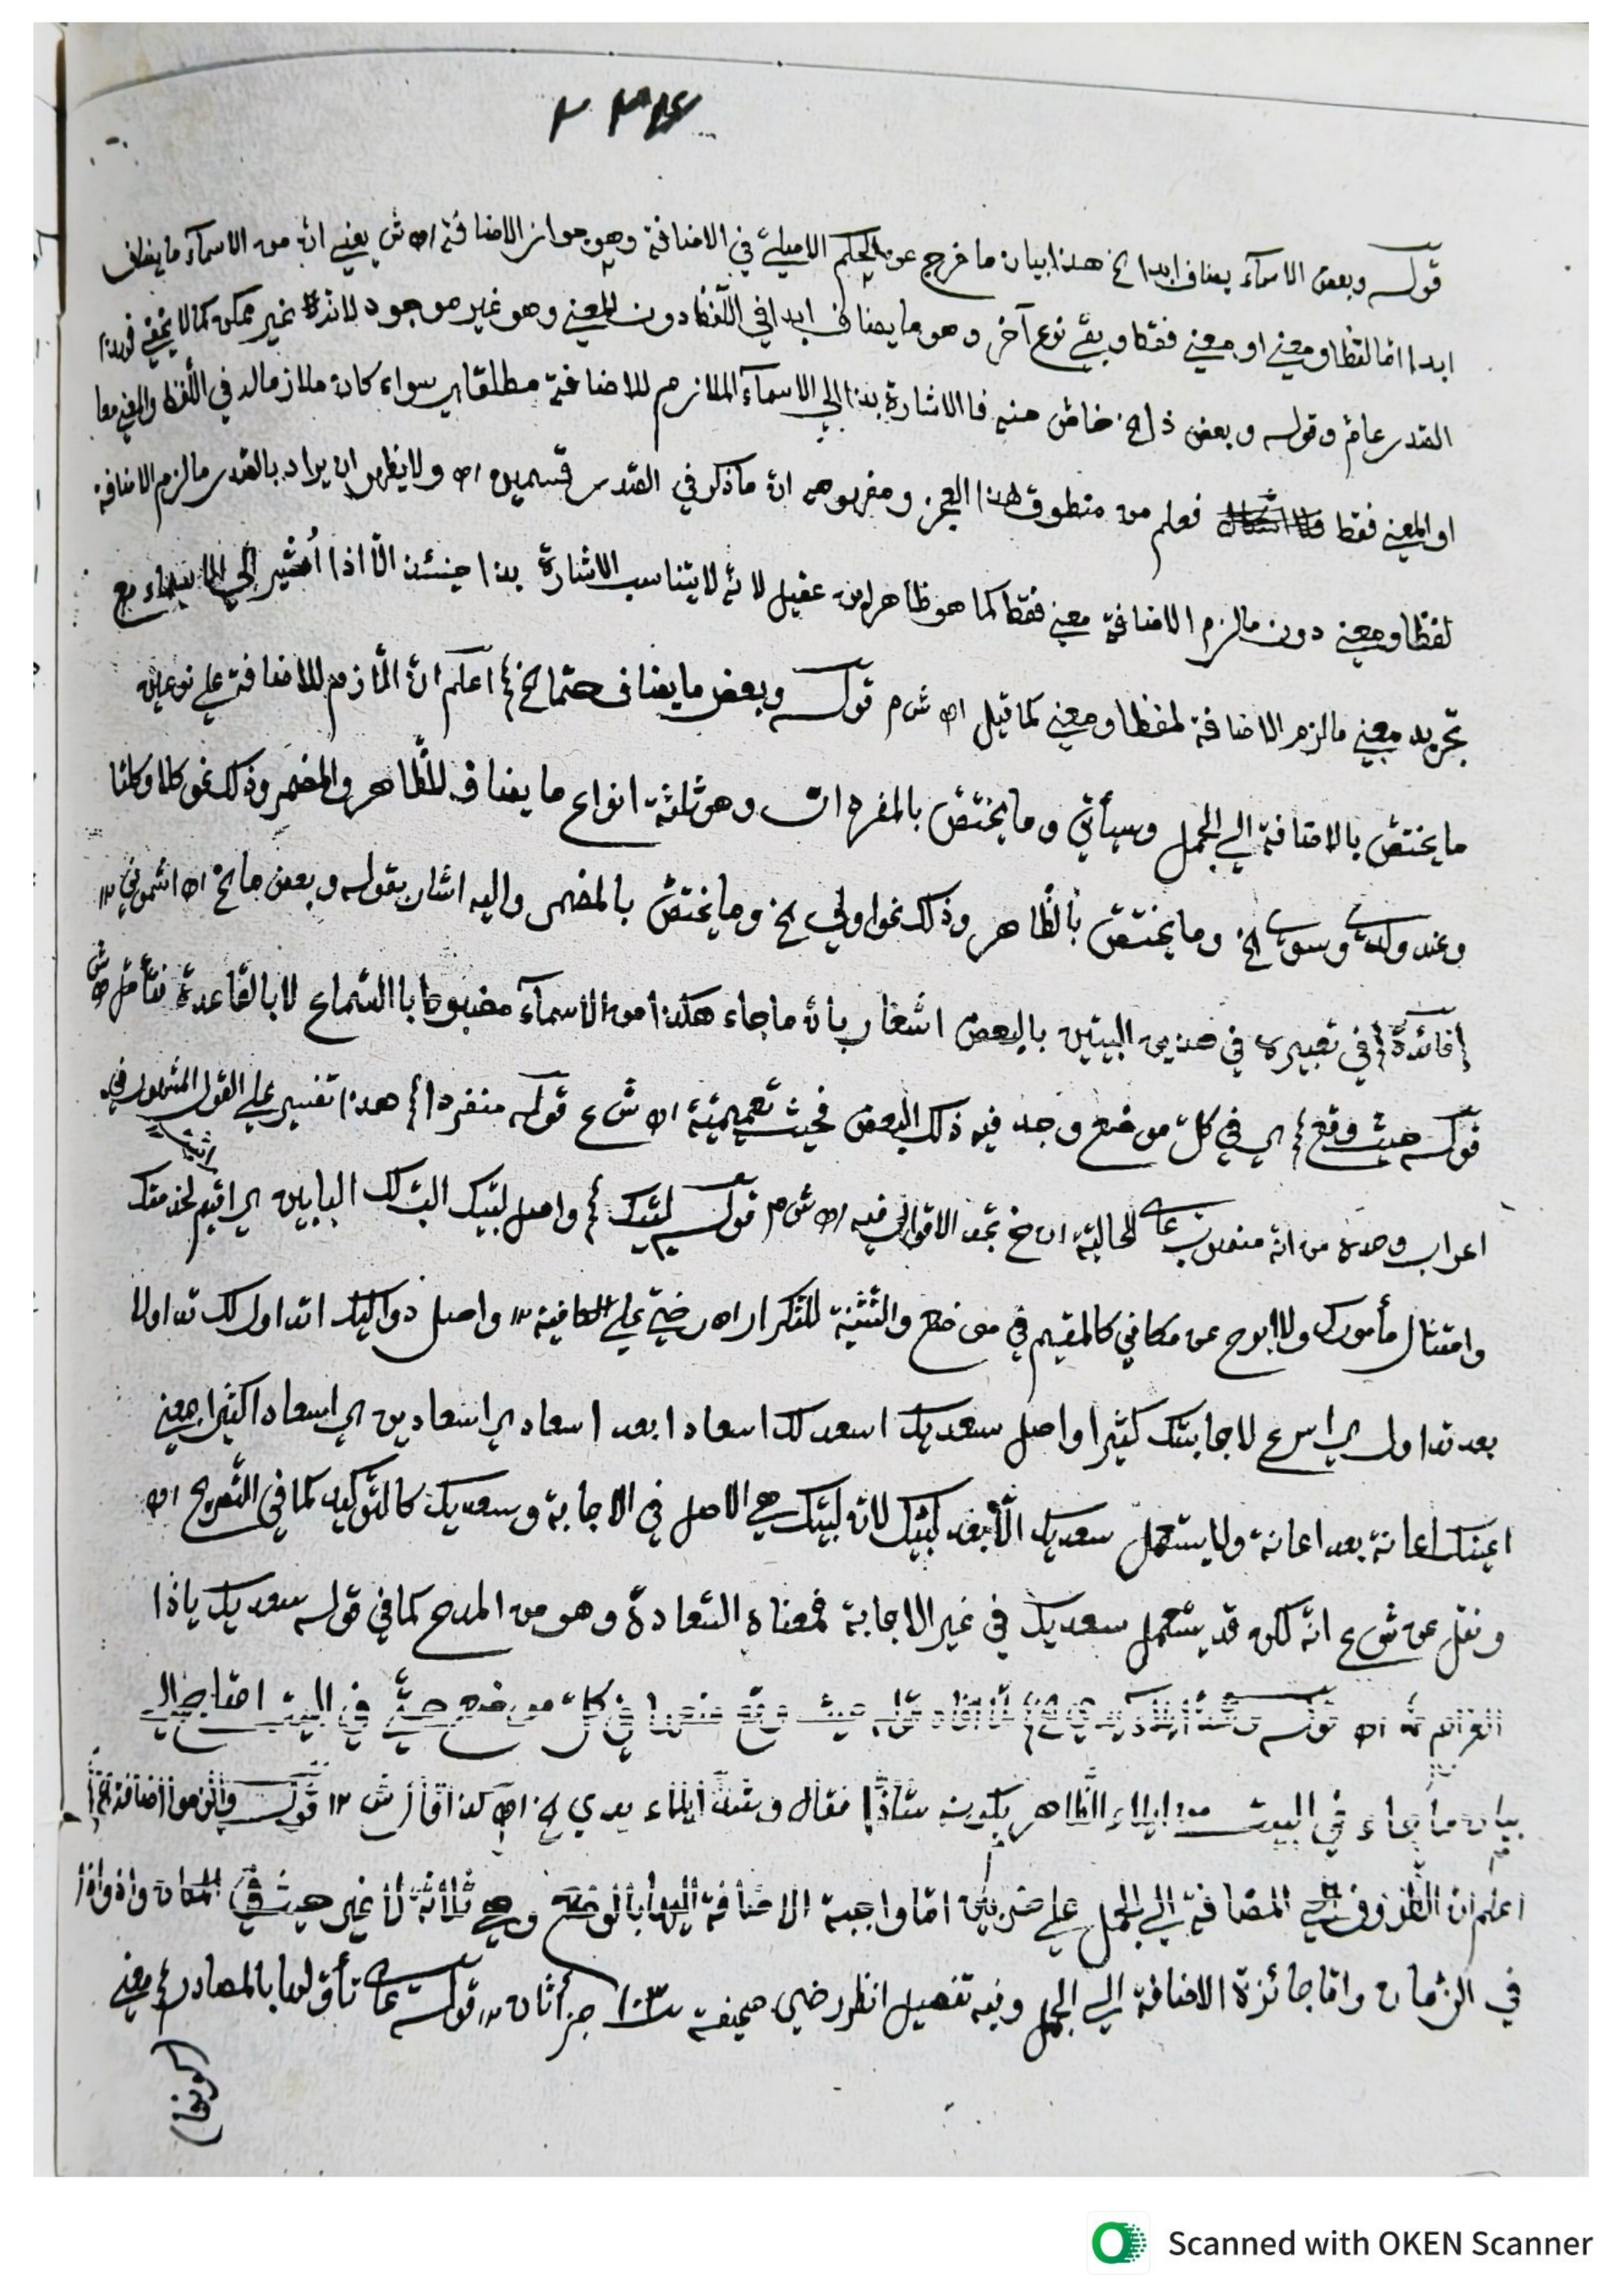 قوله وبعض الاسماء يضاف ابدا الخ هذا بيان ما خرج عن الحكم الاصلي في الاضافة وهو جواز الاضافة اه ش يعني ان من الاسماء ما يضاف
ابدا اما لفظا ومعنى او معنى فقط وبقي نوع آخر وهو ما يضاف ابدا في اللفظ دون المعنى وهو غير موجود لانه غير ممكن كما لا يخفى فهذا
القدر عام وقوله وبعض ذا الخ خاص منه فالاشارة بذا الى الاسماء الملازم للاضافة مطلقا اي سواء كان ملازما له في اللفظ والمعنى معا
او المعنى فقط فعلم من منطوق هذا العجز ومفهومه ان ما ذكر في القدر قسمين اه ولا يظهر ان يراد بالقدر ما لزم الاضافة
لفظا ومعنى دون ما لزم الاضافة معنى فقط كما هو ظاهر ابن عقيل لانه لا يتناسب الاشارة بذا حينئذ الا اذا اشير الى مع
تجريد معنى ما لزم الاضافة لفظا ومعنى كما قيل اه ش م قوله وبعض ما يضاف حتما الخ اعلم ان اللازم للاضافة على نوعين
ما يختص بالاضافة الى الجمل وسيأتي وما يختص بالمفردات وهو ثلثة انواع ما يضاف للظاهر والمضمر وذلك نحو كلا وكلتا
وعند ولدى وسوى الخ وما يختص بالظاهر وذلك نحو اولي الخ وما يختص بالمضمر واليه اشار بقوله وبعض ما الخ اه اشموني ١٢
(فائدة) في تعبيره في هذين البيتين بالبعض اشعار بان ما جاء هكذا من الاسماء مضبوط بالسماع لا بالقاعدة فتأمل اه ش
قوله حيث وقع اي في كل موضع وجد فيه ذلك البعض فحيث تعميمية اه ش ع قوله منفردا هذا تفسير على القول المشهور في
اعراب وحده من انه منصوب على الحالية الاقوال فيه اه ش م قوله لبيك واصل لبيك الب لك البابين اي اقيم لخدمتك
وامتثال مأمورك ولا ابرح عن مكاني كالمقيم في موضع والتثنية للتكرار اه رضي على الكافية ١٢ واصل دواليك اتداول لك تداولا
بعد تداول اي اسرع لاجابتك كثيرا واصل سعديك اسعد لك اسعادا بعد اسعاد اي اسعادين اي اسعادا كثيرا بمعنى
اعينك اعانة بعد اعانة ولا يستعمل سعديك الا بعد لبيك لان لبيك هي الاصل في الاجابة وسعديك كالتوكيد كما في التصريح اه
ونقل عن ش ع انه لكن قد يستعمل سعديك في غير الاجابة فمعناه السعادة وهو من المدح كما في قوله سعديك يا ذا
اه قوله وشذ ايلاء يدي الخ لما افاد قوله حيث وقع في كل موضع حتى في البيت احتاج الى
بيان ما جاء في البيت من ايلاء الظاهر بكونه شاذا فقال وشذ ايلاء يدي الخ اه كذا قال ش ١٢ قوله والزموا اضافة الخ
اعلم ان الظروف المضافة الى الجمل على ضربين اما واجبة الاضافة اليها بالوضع وهي ثلاثة لا غير حيث في المكان واذ واذا
في الزمان واما جائزة الاضافة الى الجمل وفيه تفصيل انظر رضي صحيفة ١٠٣ جزأ ثان ١٢ قوله على تأولها بالمصادر معنى
(كونها)
Scanned with OKEN Scanner